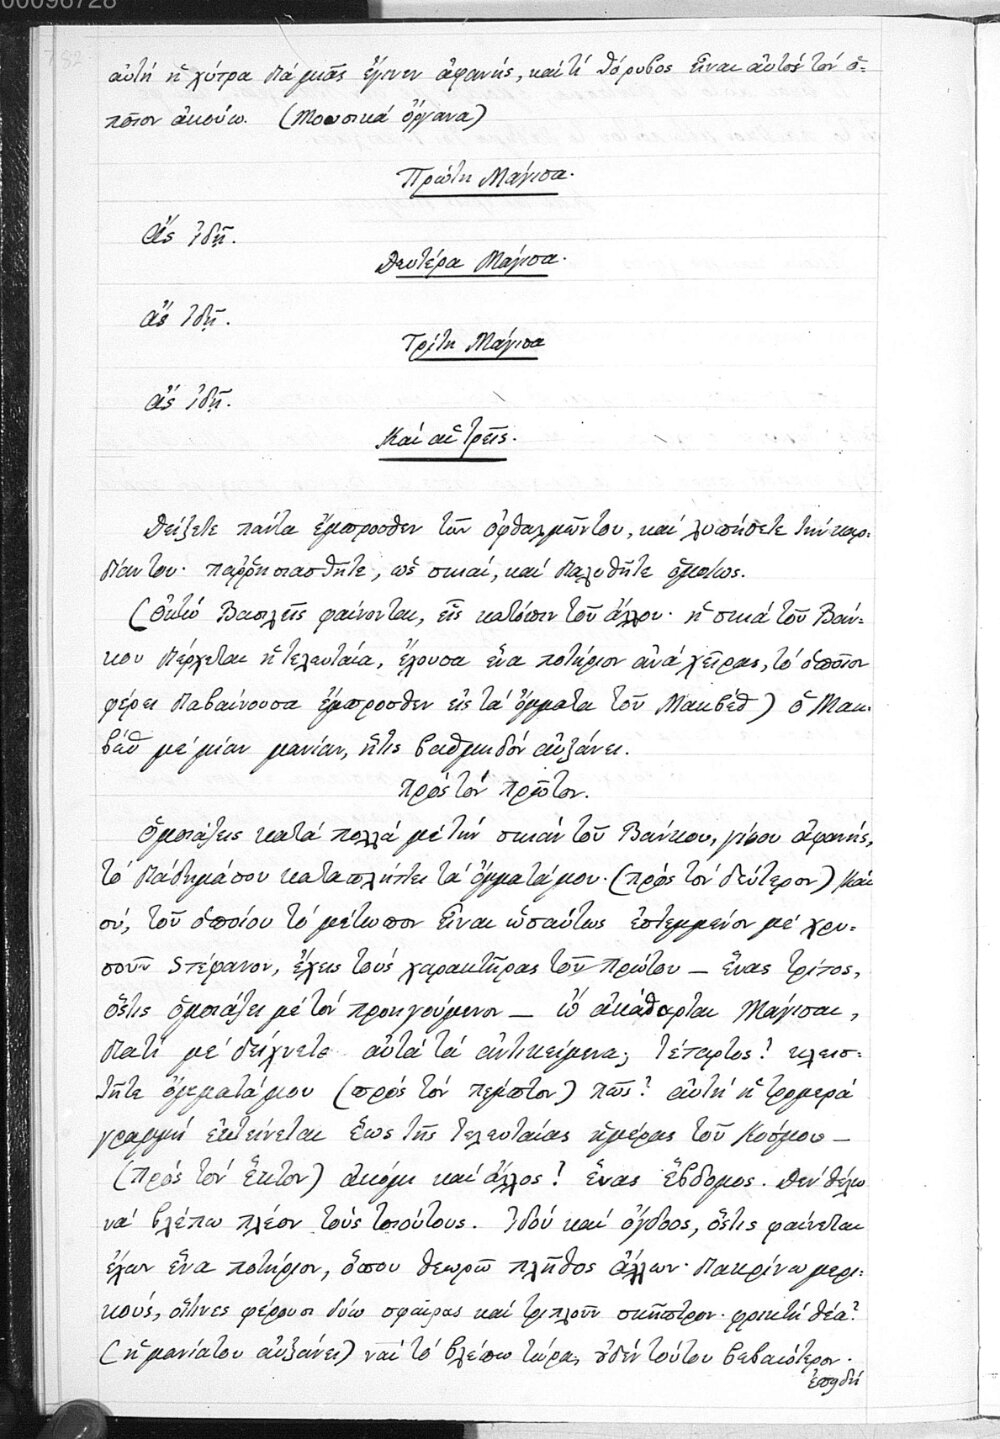 00096728
182
αὐτὴ ἡ χύτρα διὰ μιᾶς ἔγεινεν ἀφανής, καὶ τί θόρυβος εἶναι αὐτὸς τὸν ὁ-
ποῖον ἀκούω. (Μουσικά ὄργανα)
Πρώτη Μάγισα.
Ἄς ἰδῇ.
Δευτέρα Μάγισα.
ἄς ἰδῇ.
Τρίτη Μάγισα
ἄς ἰδῇ.
Καὶ αἱ τρεῖς.
Δείξετε πάντα ἔμπροσθεν τῶν ὀφθαλμῶν του, καὶ λυπήσετε τὴν καρ-
δίαν του· παρρησιασθῆτε, ὡς σκιαί, καὶ διαλυθῆτε ὁμοίως.
(Ὀκτώ Βασιλεῖς φαίνονται, εἷς κατόπιν τοῦ ἄλλου· ἡ σκιά τοῦ Βάν-
κου διέρχεται ἡ τελευταία, ἔχουσα ἕνα ποτήριον ἀνά χεῖρας, τό ὁποῖον
φέρει διαβαίνουσα ἔμπροσθεν εἰς τά ὄμματα τοῦ Μακβέθ) ὁ Μακ-
βέθ μέ μίαν μανίαν, ἥτις βαθμηδόν αὐξάνει.
Πρός τόν πρῶτον.
Ὁμοιάζεις κατά πολλά μέ τήν σκιάν τοῦ Βάνκου, γίνου ἀφανής,
τό διάδημά σου καταπλήττει τά ὄμματά μου· (πρός τόν δεύτερον) καί
σύ, τοῦ ὁποίου τό μέτωπον εἶναι ὡσαύτως ἐστεμμένον μέ χρυ-
σοῦν στέφανον, ἔχεις τούς χαρακτῆρας τοῦ πρώτου — ἕνας τρίτος,
ὅστις ὁμοιάζει μέ τόν προηγούμενον — ὦ ἀκάθαρται Μάγισαι,
διατί μέ δείχνετε αὐτά τά ἀντικείμενα; τέταρτος! κλεισ-
τῆτε ὄμματά μου (πρός τόν πέμπτον) πῶς! αὐτή ἡ τρομερά
γραμμή ἐκτείνεται ἕως τῆς τελευταίας ἡμέρας τοῦ Κόσμου —
(πρός τόν ἕκτον) ἀκόμι καί ἄλλος! ἕνας ἕβδομος. Δέν θέλω
νά βλέπω πλέον τούς τοιούτους. Ἰδού καί ὄγδοος, ὅστις φαίνεται
ἔχων ἕνα ποτήριον, ὅπου θεωρῶ πλῆθος ἄλλων· διακρίνω μερι-
κούς, οἵτινες φέρουσι δύω σφαίρας καί τριπλοῦν σκῆπτρον· φρικτή θέα!
(ἡ μανία του αὐξάνει) ναί τό βλέπω τώρα, οὐδέν τούτου βεβαιότερον·
ἐπειδή